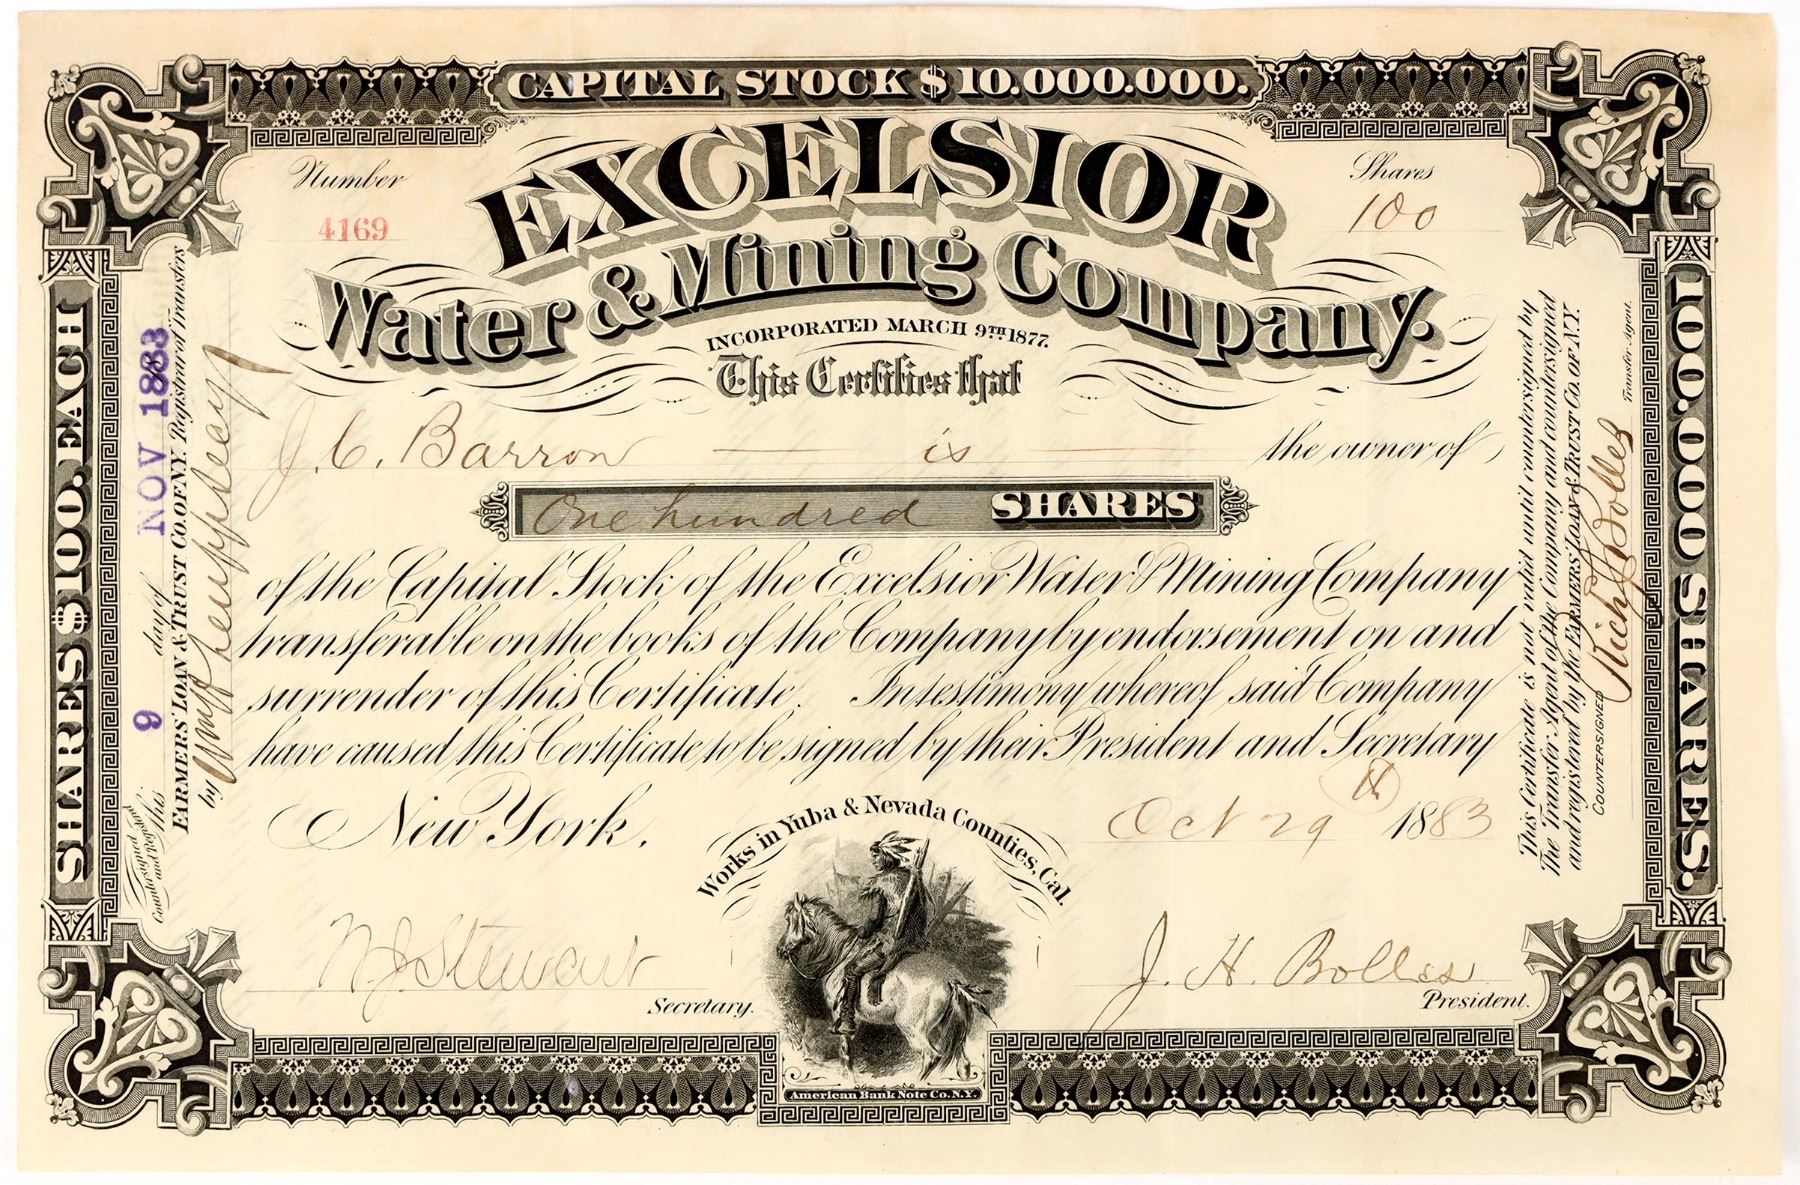 CAPITAL STOCK $10.000.000.
Number
4169
EXCELSIOR
Shares
100
Water & Mining Company.
INCORPORATED MARCH 9TH 1877.
This Certifies that
J. C. Barron is the owner of
One hundred SHARES
of the Capital Stock of the Excelsior Water & Mining Company
transferable on the books of the Company by endorsement on and
surrender of this Certificate. In testimony whereof said Company
have caused this Certificate to be signed by their President and Secretary
New York. Oct 29 1883
Works in Yuba & Nevada Counties, Cal.
Stewart
Secretary.
J. H. Bolles
President.
American Bank Note Co. N.Y.
SHARES $100. EACH
Countersigned and Registered this 9 day of NOV 1883
FARMERS' LOAN & TRUST CO. OF N.Y. Registrar of transfers
by
100.000 SHARES.
This Certificate is not valid until countersigned by
The Transfer Agent of the Company and countersigned
and registered by the FARMERS' LOAN & TRUST CO. OF N.Y.
COUNTERSIGNED Bolles
Transfer Agent.